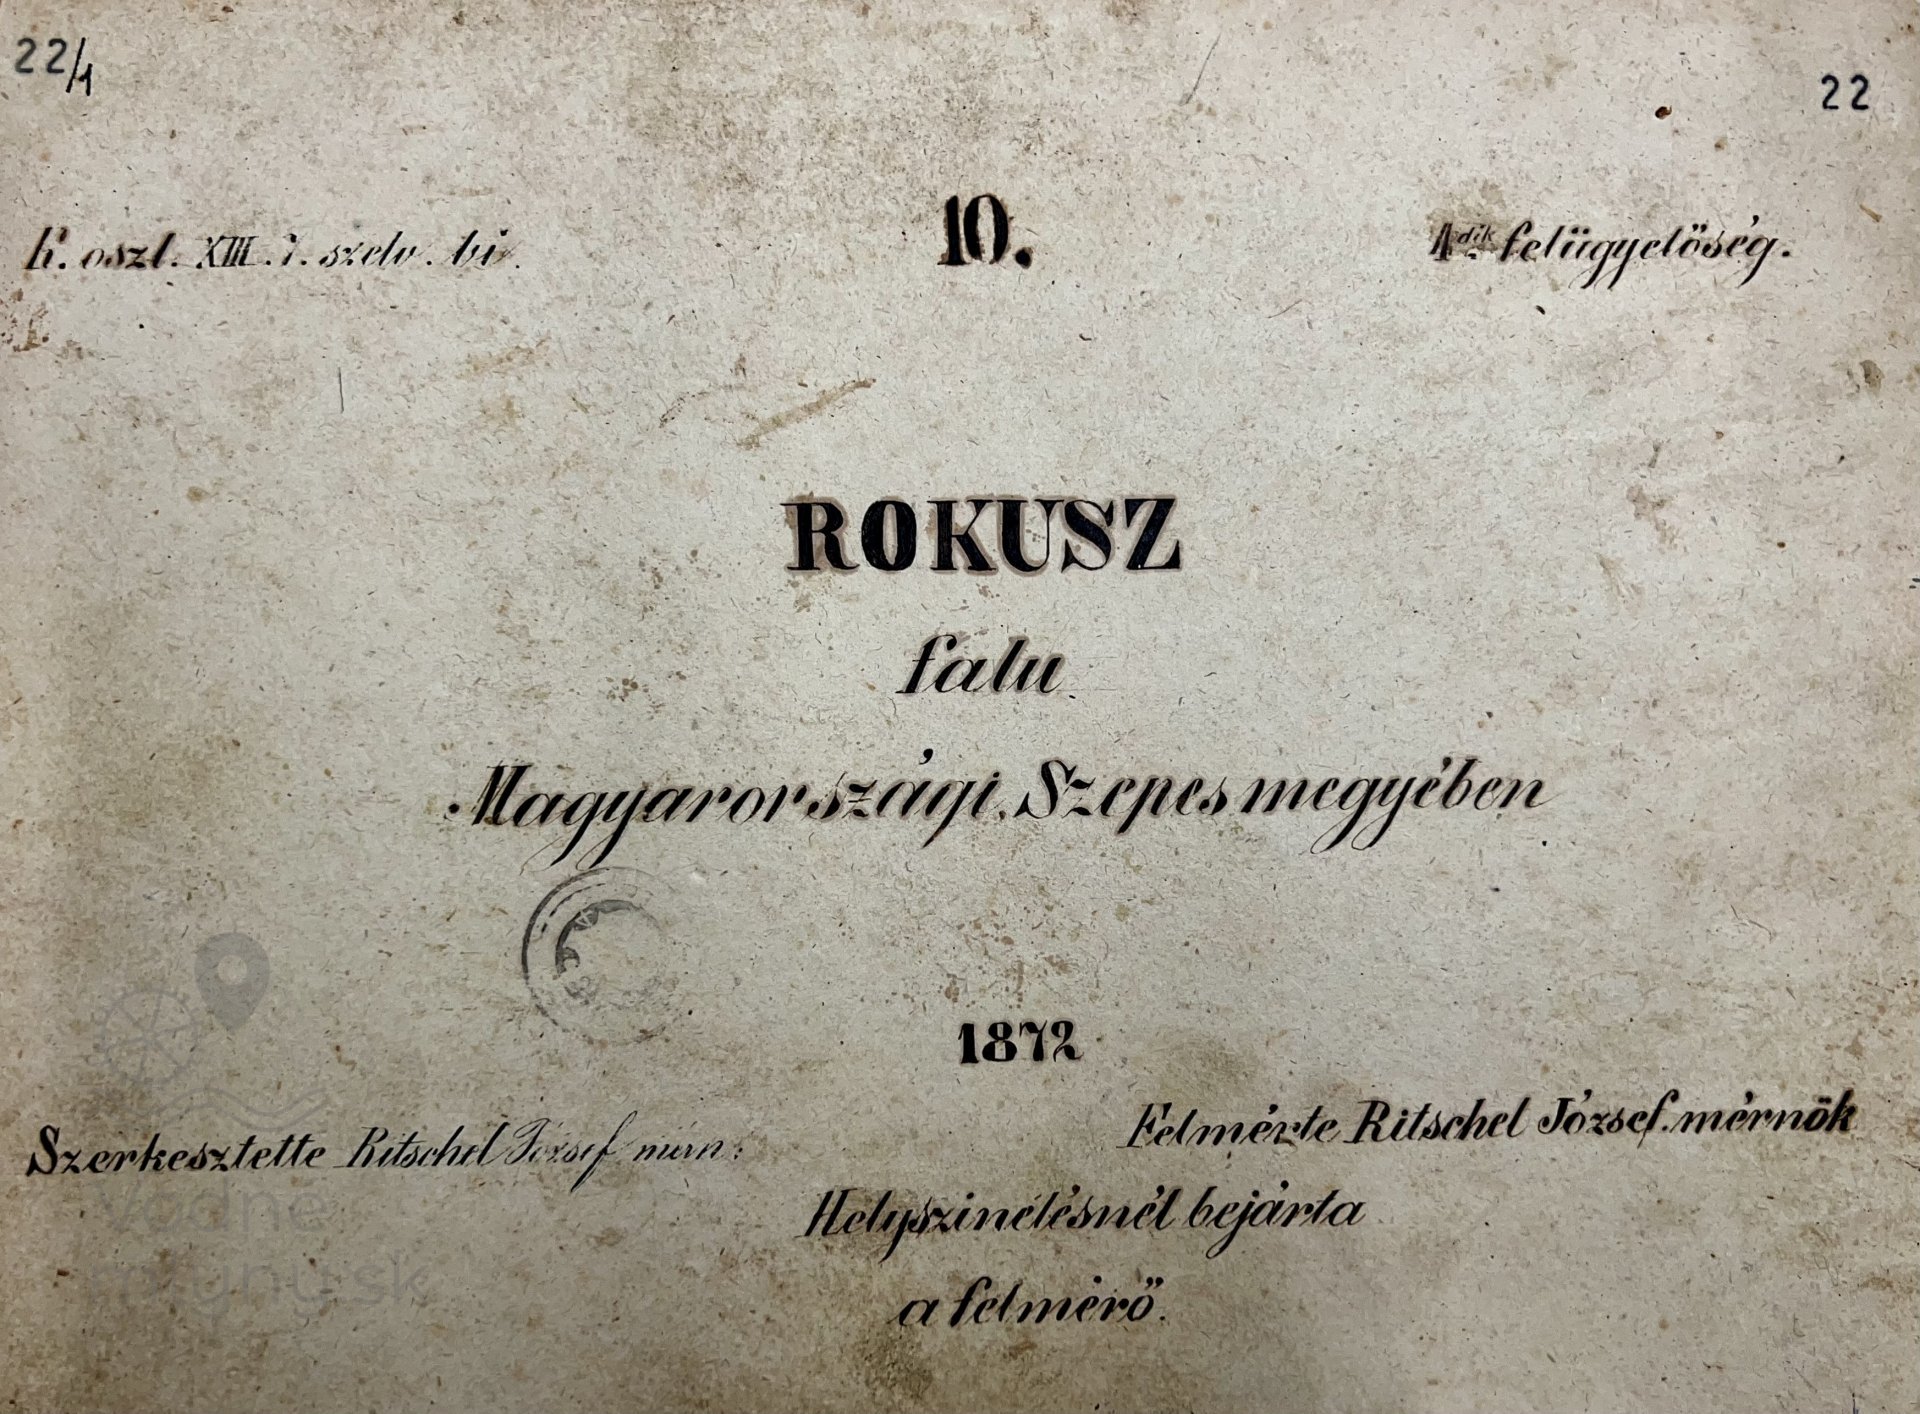 22/1
22
K. oszl. XIII. 7. szelv. bi.
10.
1dik felügyelőség.
ROKUSZ
falu
Magyarországi Szepesmegyében
1872
Szerkesztette Ritschel József mérn:
Felmérte Ritschel József mérnök
Helyszinelésnél bejárta
a felmérő.
Vodne
mlyny.sk